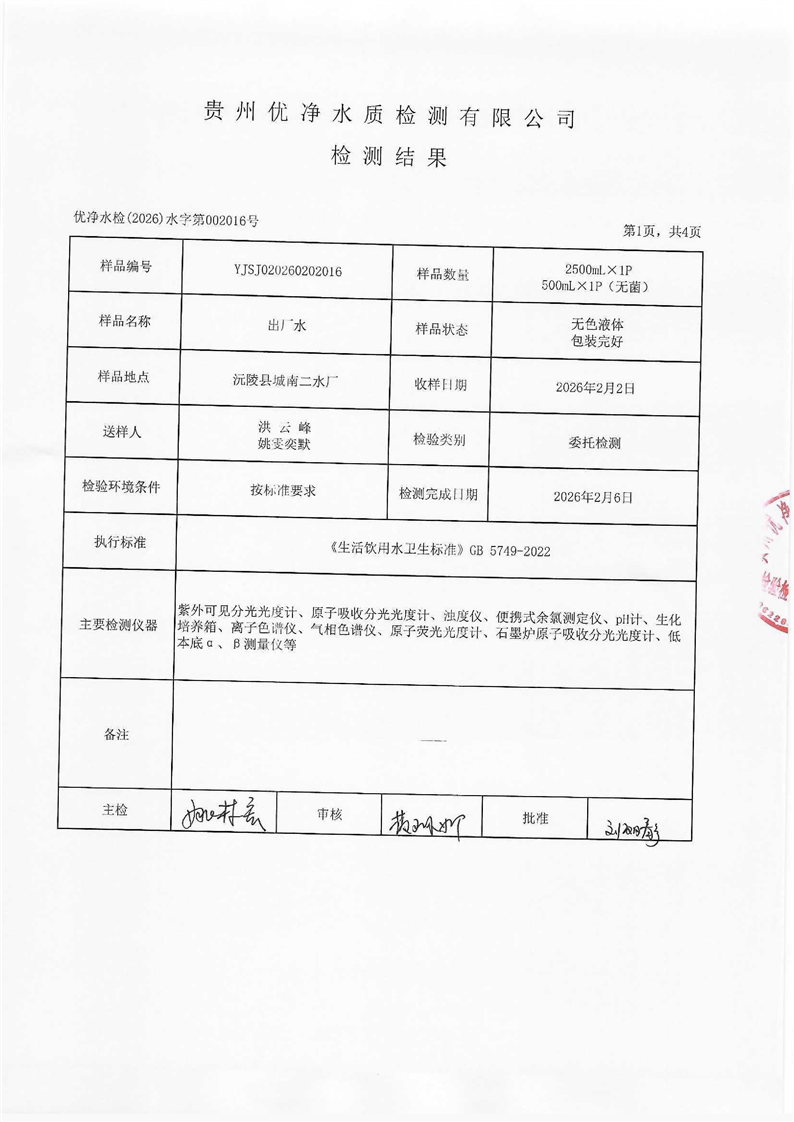 贵州优净水质检测有限公司
检测结果
优净水检(2026)水字第002016号
第1页，共4页
样品编号 YJSJ020260202016 样品数量 2500mL×1P
500mL×1P（无菌）
样品名称 出厂水 样品状态 无色液体
包装完好
样品地点 沅陵县城南二水厂 收样日期 2026年2月2日
送样人 洪云峰
姚雯奕默 检验类别 委托检测
检验环境条件 按标准要求 检测完成日期 2026年2月6日
执行标准 《生活饮用水卫生标准》GB 5749-2022
主要检测仪器 紫外可见分光光度计、原子吸收分光光度计、浊度仪、便携式余氯测定仪、pH计、生化
培养箱、离子色谱仪、气相色谱仪、原子荧光光度计、石墨炉原子吸收分光光度计、低
本底α、β测量仪等
备注 ——
主检 审核 批准